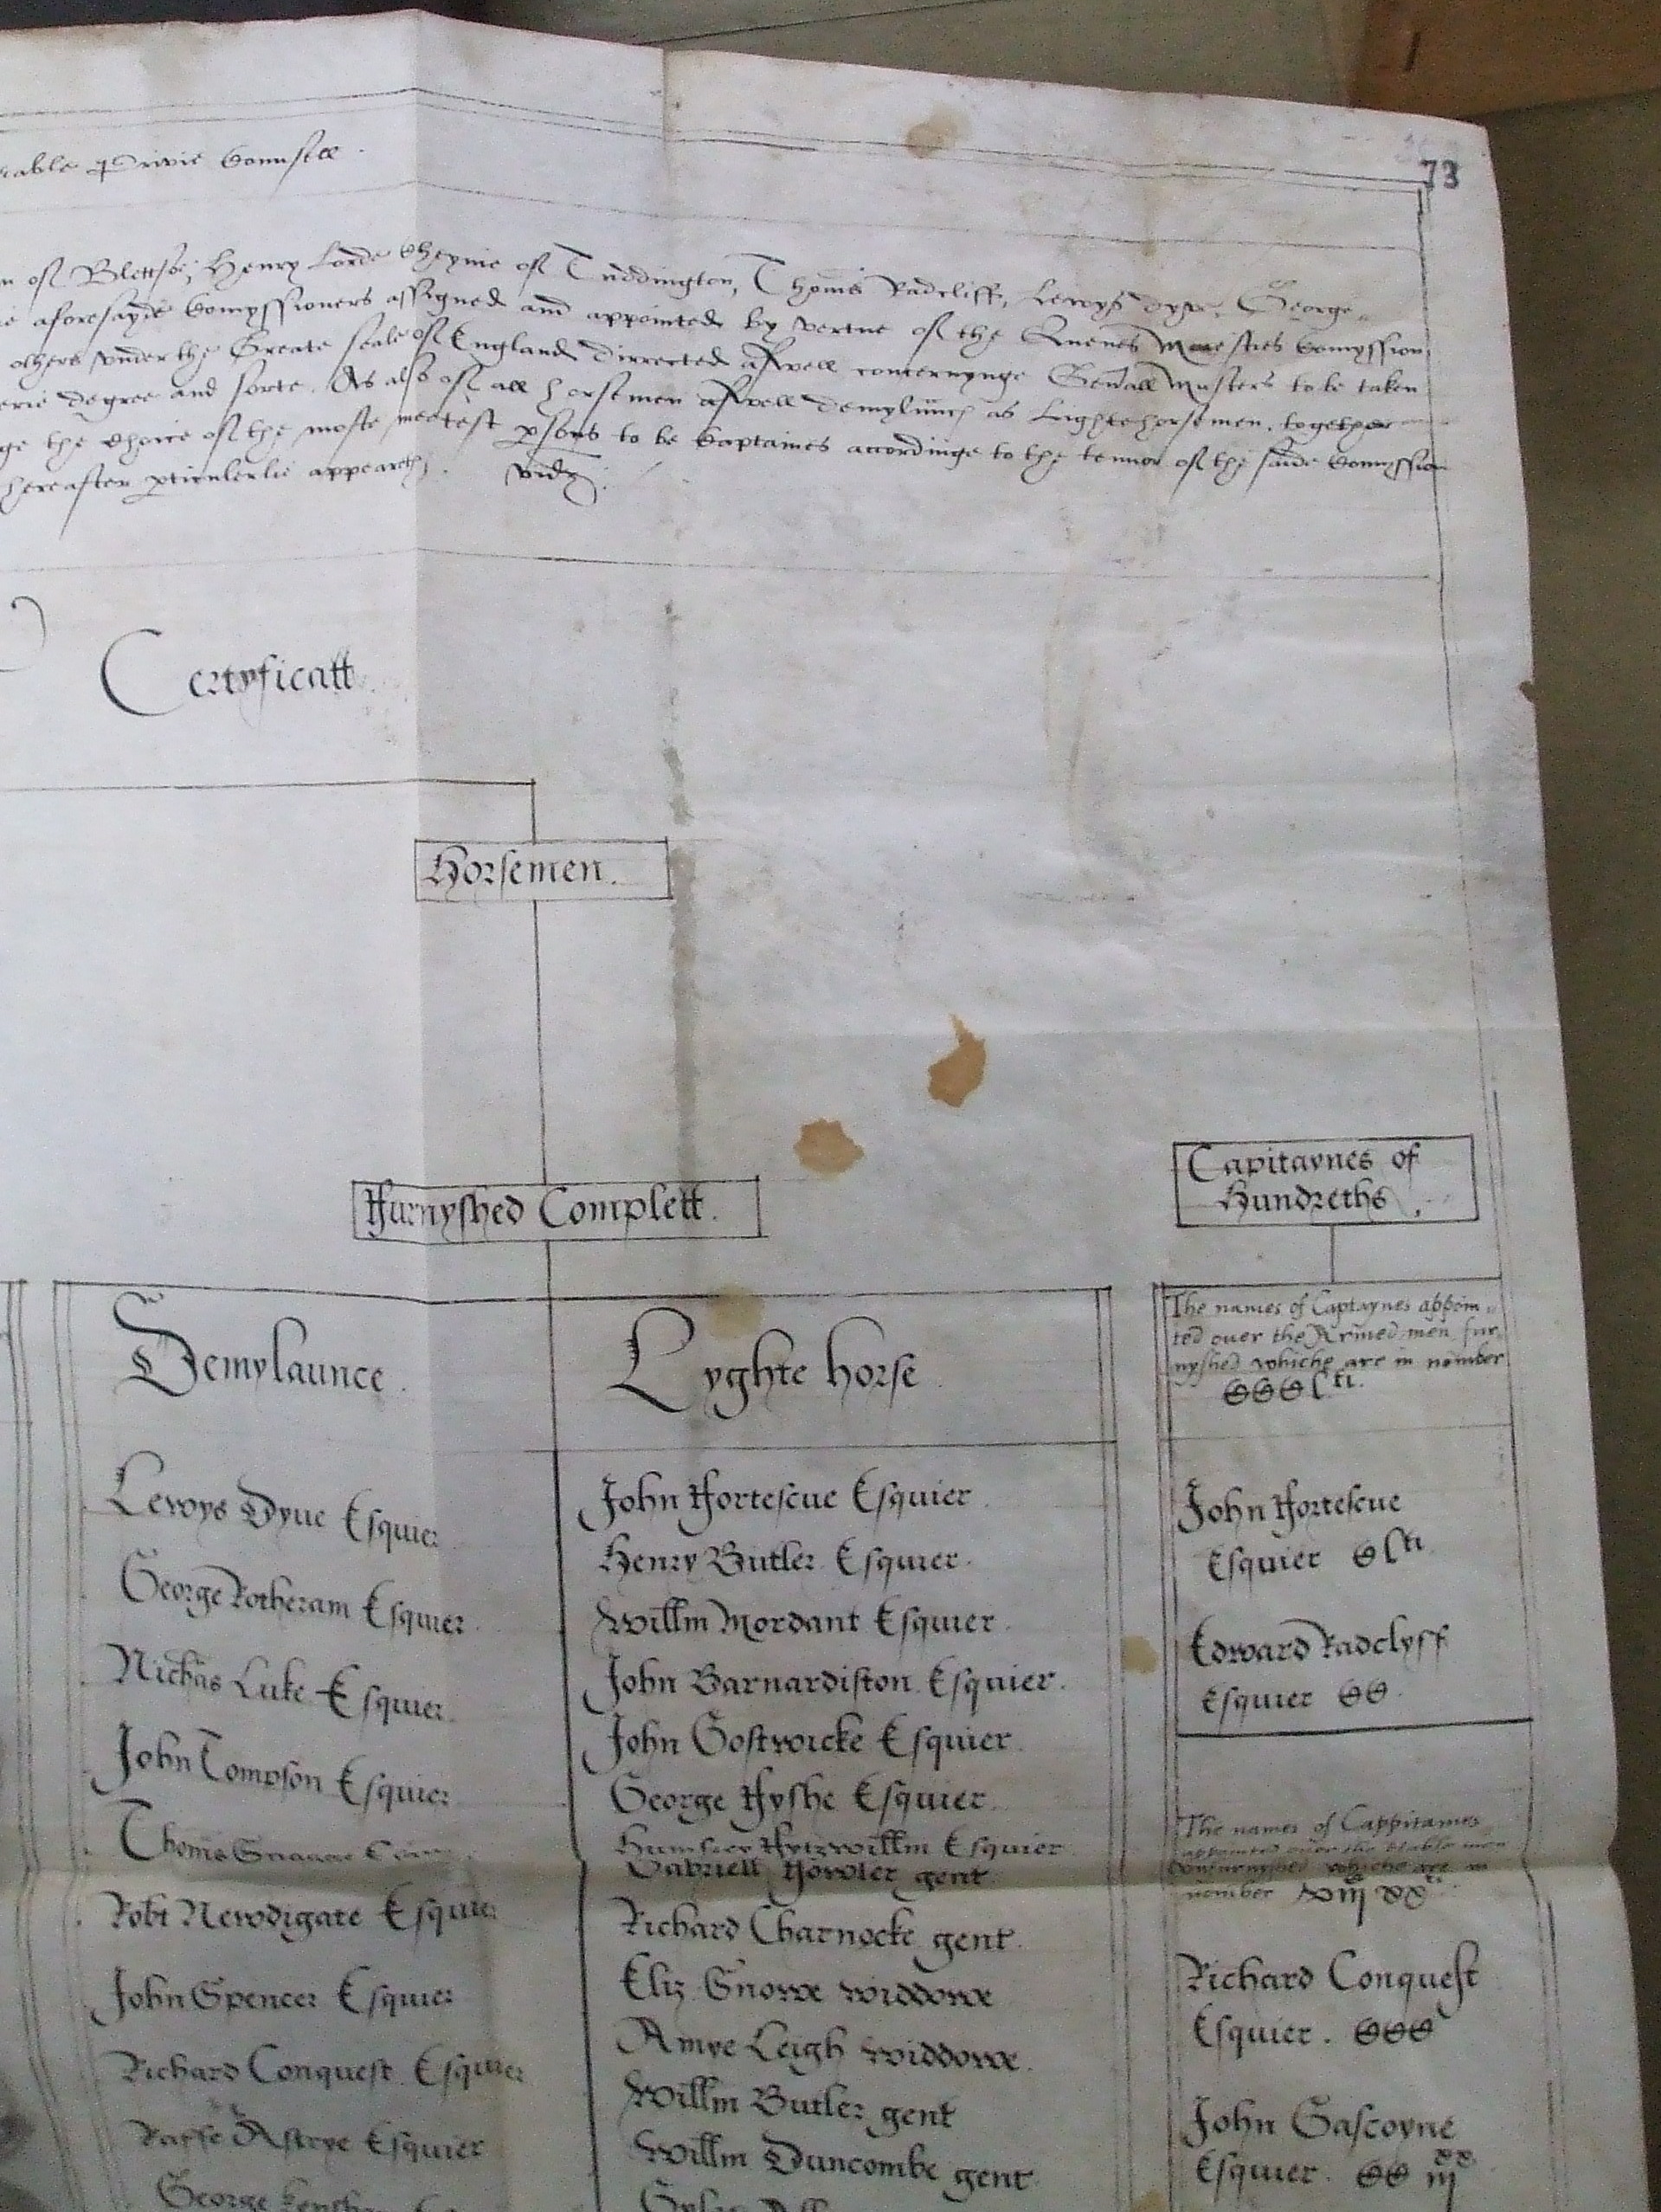 73
Privie Counsell.
of Blettsoe, Henry Lorde Cheynie of Tuddington, Thoms Radcliff, Lewys Dyve, George
aforesayde Comyssioners assigned and appointed by vertue of the Quenes Maiesties Comyssion
others under the Greate seale of England dirrected aswell concernynge Genall Musters to be taken
degree and sorte. As also of all horsemen aswell demylaunc as Lightehorsemen, together
the choice of the moste meetest psons to be Captaines accordinge to the tennor of the saide Comyssion
hereafter pticulerlie appeareth. vidz.
Certyficatt.
Horsemen.
Furnyshed Complett.
Capitaynes of
Hundreths.
Demylaunce.
Lewys Dyue Esquier
George Rotheram Esquier.
Nichas Luke Esquier.
John Tompson Esquier
Thoms Snagge
Robt Newdigate Esquier
John Spencer Esquier
Richard Conquest Esquier
Raffe Astrye Esquier
George
Lyghte horse
John Fortescue Esquier.
Henry Butler Esquier.
Willm Mordant Esquier.
John Barnardiston Esquier.
John Gostwicke Esquier.
George Fyshe Esquier.
Humfrey Fytzwillm Esquier
Gabriell Fowler gent.
Richard Charnocke gent.
Eliz Snowe widdowe
Amye Leigh widdowe.
Willm Butler gent
Willm Duncombe gent
The names of Captaynes appoin
ted over the Armed men fur
nyshed whiche are in nomber
CCC lti.
John Fortescue
Esquier Clti.
Edward Radclyff
Esquier CC.
The names of Cappitaines
appointed over the Hable men
vnfurnyshed whiche are in
nomber
Richard Conquest
Esquier. CCC
John Gascoyne
Esquier. CC iij xx